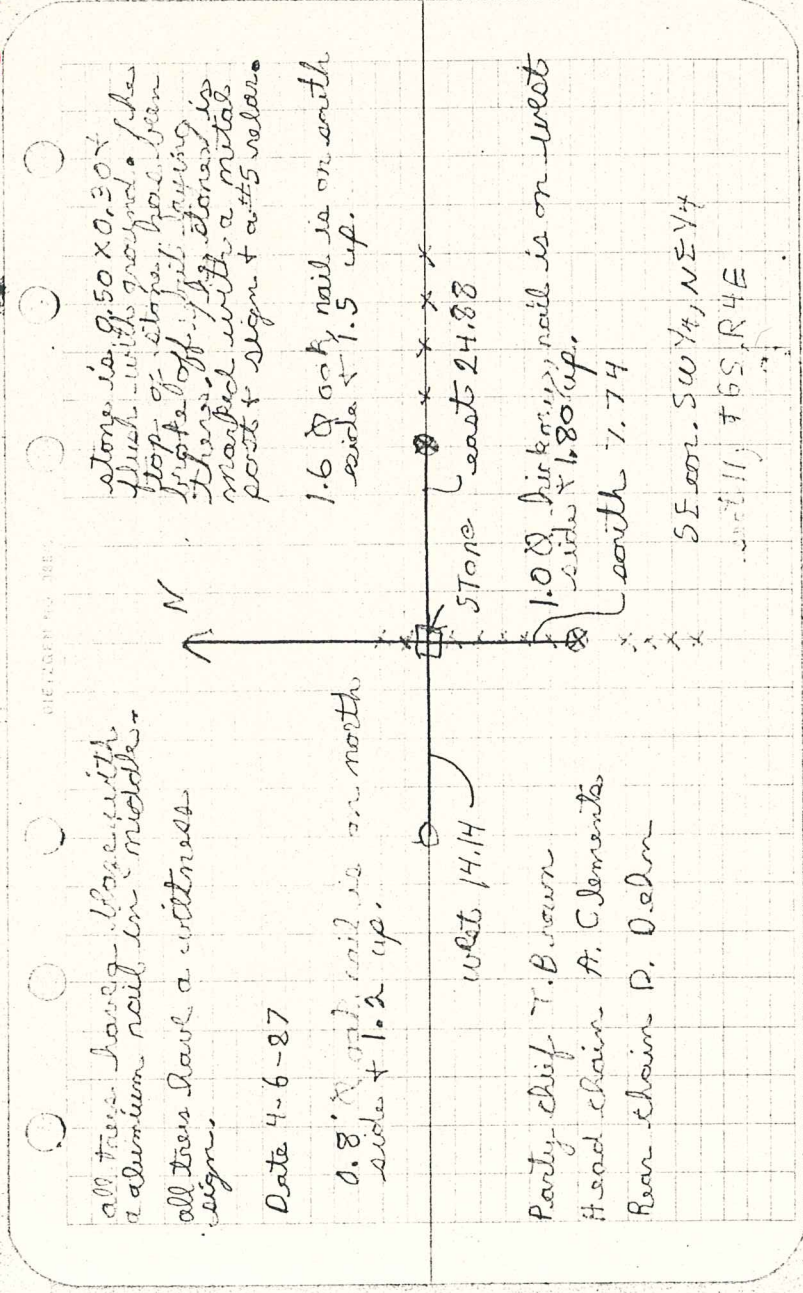 all trees have a blaze with
a alumium nail in middle.
all trees have a wittness
sign.
Date 4-6-87
0.8' Ø oak, nail is on north
side + 1.2 up.
West 14.14
Party chief T. Brown
Head chain A. Clements
Rear chain D. Dehm
N
stone is 0.50 x 0.30 +
flush with ground. The
top of stone has been
broke off + just laying
there. The stone is
marked with a metal
post + sign + a #5 rebar.
1.6 Ø oak, nail is on south
side + 1.5 up.
STONE
east 24.88
1.0 Ø hickory, nail is on west
side + 1.80 up.
south 7.74
SE cor. SW 1/4, NE 1/4
11, T6S, R4E